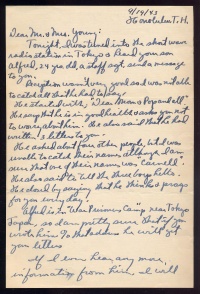 4/14/43
Honolulu T. H.
Dear Mr. & Mrs. Young:
Tonight, I was tuned into the short wave
radio station in Tokyo & heard your son
Alfred, 24 yr. old, a staff sgt, send a message
to you.
Reception wasn't very good so I was not able
to catch all that he had to say.
He started with, "Dear Mom & Pop and all"
He says that he is in good health & asks you not
to worry about him. He also said that he had
written letters to you.
He asked about four other people, but I was
unable to catch their names, although I am
sure that one of their names was "Carnell"
He also said to tell the three boys hello.
He closed by saying that he thinks & prays
for you every day.
Alfred is in "War Prisoners Camp" near Tokyo
Japan, so I am pretty sure that if you
write him to that address he will get
your letters.
If I ever hear any more,
information from him, I will